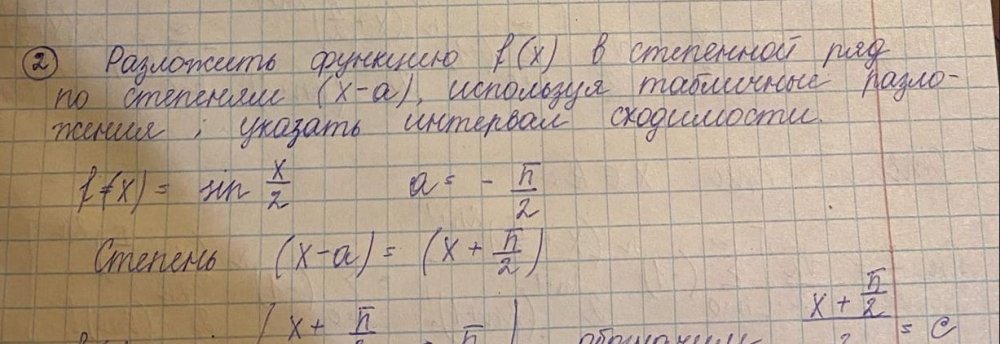 ② Разложить функцию f(x) в степенной ряд
по степеням (x-a), используя табличные разло-
жения; указать интервал сходимости.
f(x) = sin x/2 a = - π/2
Степень (x-a) = (x + π/2)
x + π/2
x + π/2 = C